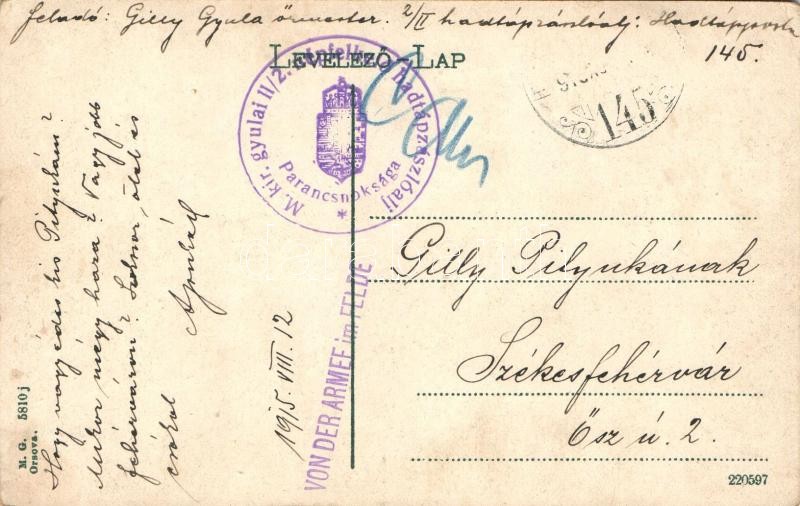 Feladó: Gilly Gyula őrmester. 2/II hadtápzászlóalj. Hadtápposta
145.
LEVELEZŐ-LAP
M. kir. gyulai II/2. népfelk. hadtápzászlóalj
Parancsnoksága
145
Hogy vagy édes kis Pityukám?
Mikor megy haza? Vagy jobb
Fehérváron? Sokszor ölel és
csókol
Apukád
915. VIII. 12
VON DER ARMEE im FELDE
Gilly Pityukának
Székesfehérvár
Ősz ú. 2.
M. G. 5810 j
Orsova.
220597